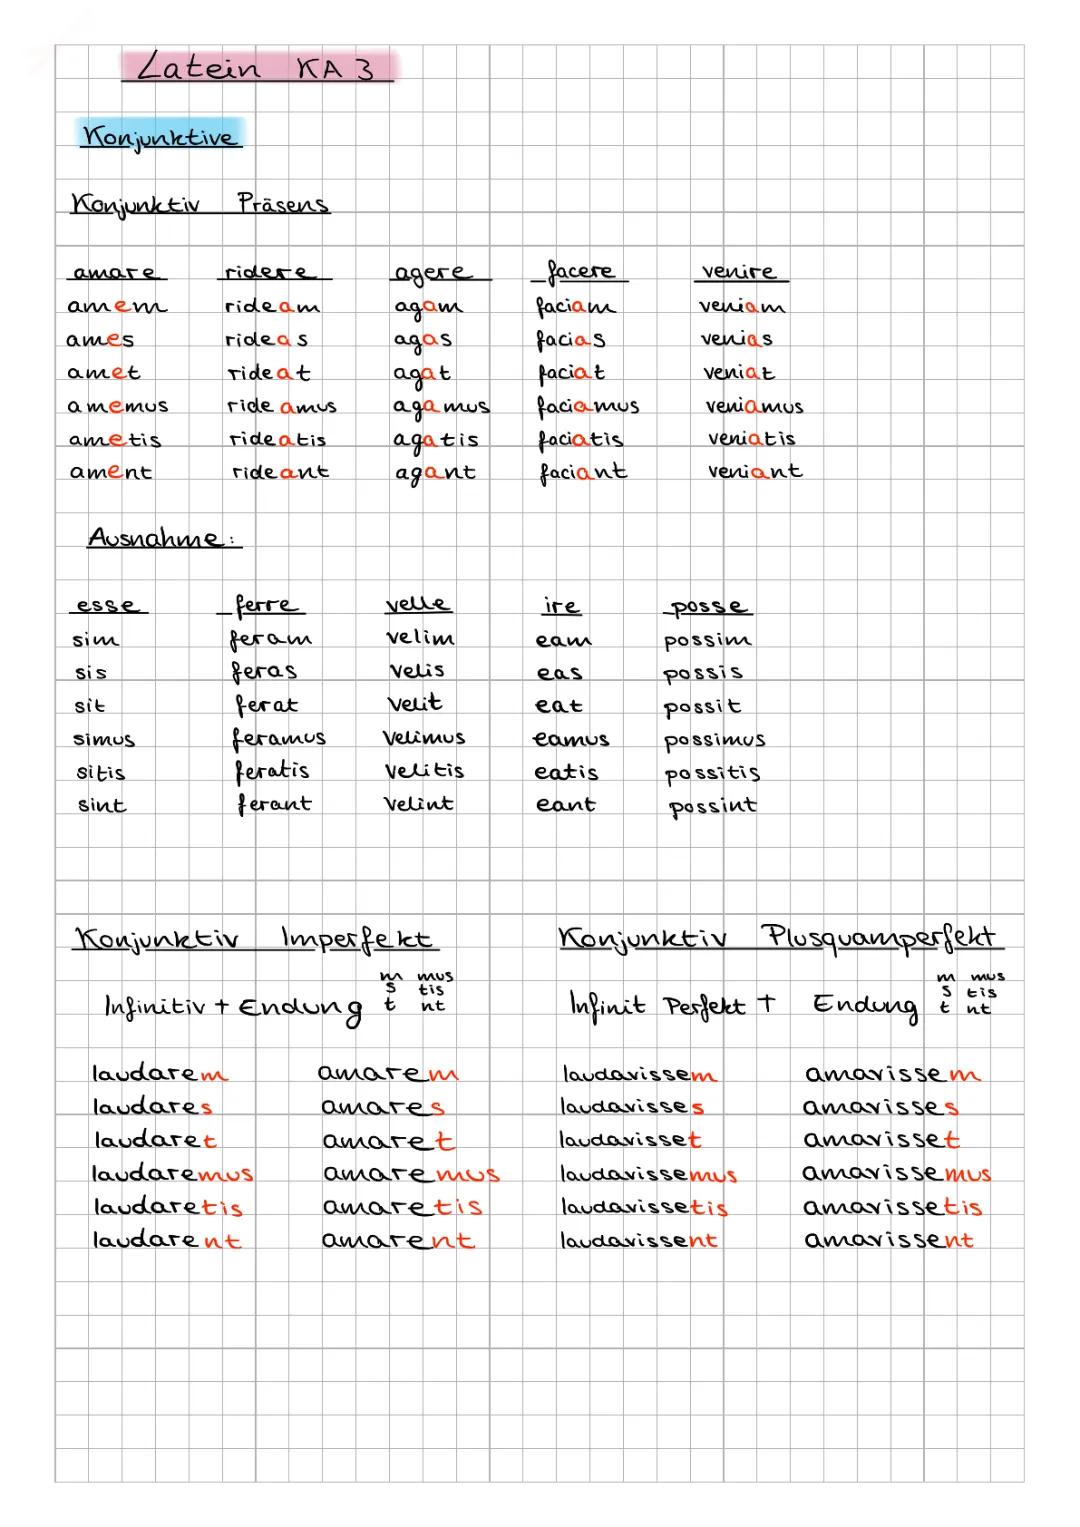 Latein KA 3
Konjunktive
Konjunktiv Präsens
amare ridere agere facere venire
amem rideam agam faciam veniam
ames rideas agas facias venias
amet rideat agat faciat veniat
amemus rideamus agamus faciamus veniamus
ametis rideatis agatis faciatis veniatis
ament rideant agant faciant veniant
Ausnahme:
esse ferre velle ire posse
sim feram velim eam possim
sis feras velis eas possis
sit ferat velit eat possit
simus feramus velimus eamus possimus
sitis feratis velitis eatis possitis
sint ferant velint eant possint
Konjunktiv Imperfekt Konjunktiv Plusquamperfekt
m mus m mus
s tis s tis
Infinitiv + Endung t nt Infinit Perfekt + Endung t nt
laudarem amarem laudavissem amavissem
laudares amares laudavisses amavisses
laudaret amaret laudavisset amavisset
laudaremus amaremus laudavissemus amavissemus
laudaretis amaretis laudavissetis amavissetis
laudarent amarent laudavissent amavissent